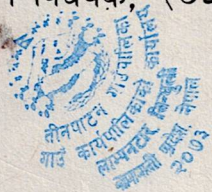 तीनपाटन गाउँपालिका
गाउँ कार्यपालिकाको कार्यालय
लाम्पनटार, सिन्धुली
बागमती प्रदेश, नेपाल
२०७३